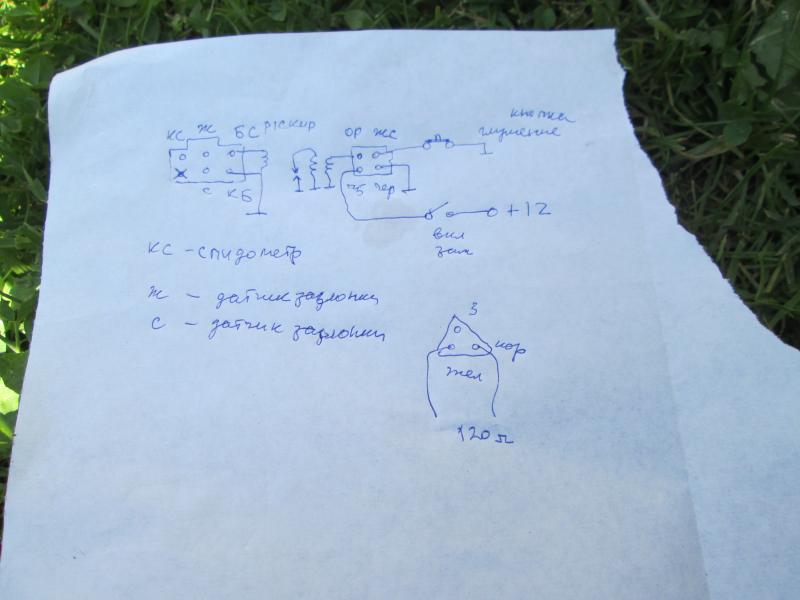 кнопка
КС Ж БС ОР ЖС глушение
С КБ ЧБ чер
+12
вкл
заж
КС - спидометр
Ж - датчик заслонки
С - датчик заслонки
З
кор
жел
120 Ω